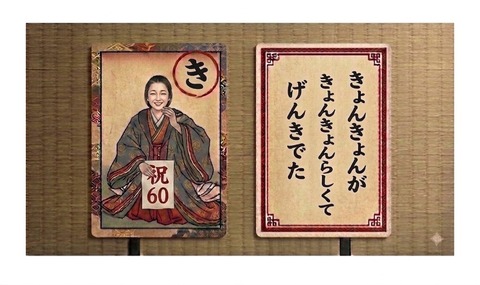 き
祝
60
きょんきょんが
きょんきょんらしくて
げんきでた